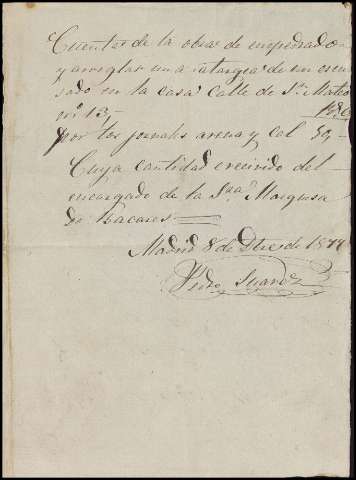 Cuenta de la obra de empedrado
y arreglar una atargea de un escu
sado en la casa Calle de Sn. Mateo
nº 13,-
por los jornales arena y cal 59,-
Cuya cantidad e recivido del
encargado de la Sra. Marquesa
de Bacares
Madrid 8 de Dbre de 1877
Pedro Suarez